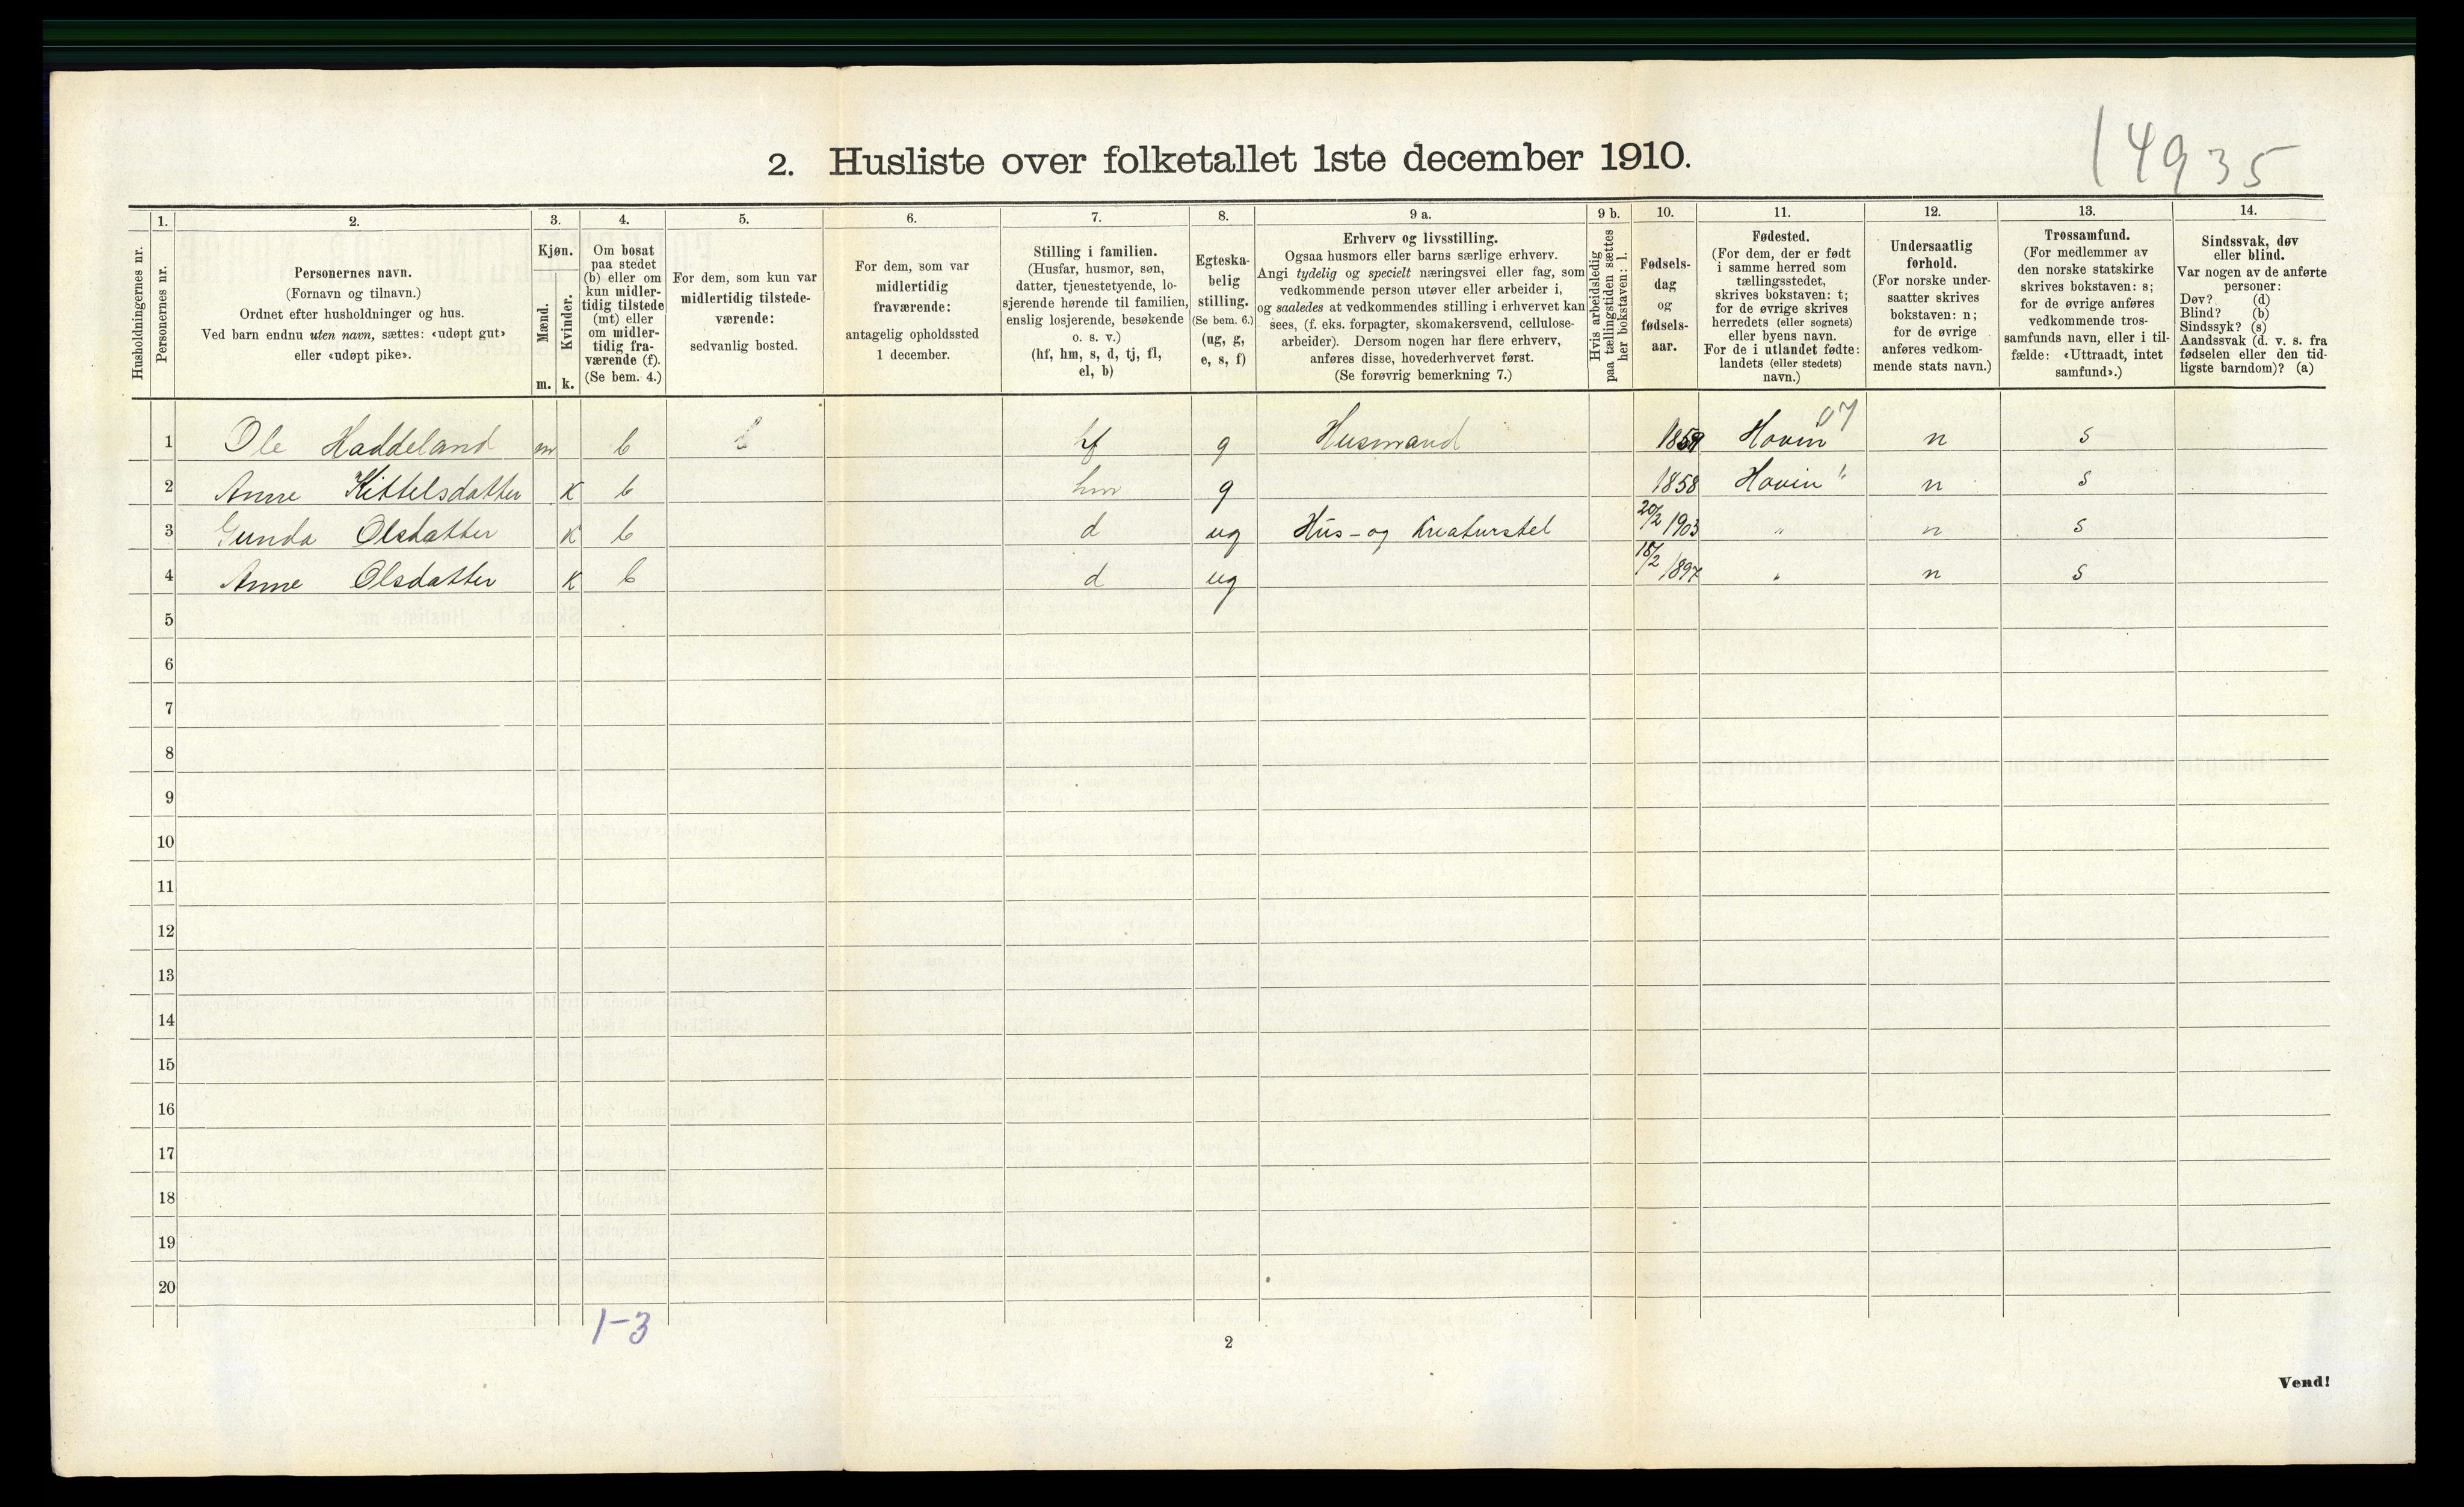 14935
2. Husliste over folketallet 1ste december 1910.
1. 2. 3. 4. 5. 6. 7. 8. 9 a. 9 b. 10. 11. 12. 13. 14.
Husholdningernes nr.
Personernes nr.
Personernes navn.
(Fornavn og tilnavn.)
Ordnet efter husholdninger og hus.
Ved barn endnu uten navn, sættes: «udøpt gut»
eller «udøpt pike».
Kjøn.
Mænd.
Kvinder.
m. k.
Om bosat
paa stedet
(b) eller om
kun midler-
tidig tilstede
(mt) eller
om midler-
tidig fra-
værende (f).
(Se bem. 4.)
For dem, som kun var
midlertidig tilstede-
værende:
sedvanlig bosted.
For dem, som var
midlertidig
fraværende:
antagelig opholdssted
1 december.
Stilling i familien.
(Husfar, husmor, søn,
datter, tjenestetyende, lo-
sjerende hørende til familien,
enslig losjerende, besøkende
o. s. v.)
(hf, hm, s, d, tj, fl,
el, b)
Egteska-
belig
stilling.
(Se bem. 6.)
(ug, g,
e, s, f)
Erhverv og livsstilling.
Ogsaa husmors eller barns særlige erhverv.
Angi tydelig og specielt næringsvei eller fag, som
vedkommende person utøver eller arbeider i,
og saaledes at vedkommendes stilling i erhvervet kan
sees, (f. eks. forpagter, skomakersvend, cellulose-
arbeider). Dersom nogen har flere erhverv,
anføres disse, hovederhvervet først.
(Se forøvrig bemerkning 7.)
Hvis arbeidsledig
paa tællingstiden sættes
her bokstaven: l.
Fødsels-
dag
og
fødsels-
aar.
Fødested.
(For dem, der er født
i samme herred som
tællingsstedet,
skrives bokstaven: t;
for de øvrige skrives
herredets (eller sognets)
eller byens navn.
For de i utlandet fødte:
landets (eller stedets)
navn.)
Undersaatlig
forhold.
(For norske under-
saatter skrives
bokstaven: n;
for de øvrige
anføres vedkom-
mende stats navn.)
Trossamfund.
(For medlemmer av
den norske statskirke
skrives bokstaven: s;
for de øvrige anføres
vedkommende tros-
samfunds navn, eller i til-
fælde: «Uttraadt, intet
samfund».)
Sindssvak, døv
eller blind.
Var nogen av de anførte
personer:
Døv? (d)
Blind? (b)
Sindssyk? (s)
Aandssvak (d. v. s. fra
fødselen eller den tid-
ligste barndom)? (a)
07
1 Ole Haddeland m b b hf g Husmand 1859 Hovin n s
2 Anne Kittelsdatter k b hm g 1858 Hovin " n s
3 Gunda Olsdatter k b d ug Hus- og Kreaturstel 20/2 1903 " n s
4 Anne Olsdatter k b d ug 18/2 1897 " n s
5
6
7
8
9
10
11
12
13
14
15
16
17
18
19
20
1-3
2
Vend!